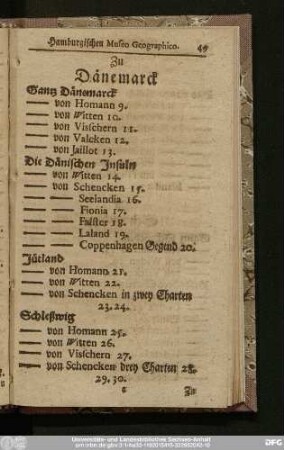 Hamburgischen Museo Geographico. 49
Zu
Dänemarck
Gantz Dänemarck
— — von Homann 9.
— — von Witten 10.
— — von Visschern 11.
— — von Valcken 12.
— — von Jaillot 13.
Die Dänischen Insuln
— — von Witten 14.
— — von Schencken 15.
— — — Seelandia 16.
— — — Fionia 17.
— — — Falster 18.
— — — Laland 19.
— — — Coppenhagen Gegend 20.
Jütland
— — von Homann 21.
— — von Witten 22.
— — von Schencken in zwey Charten
23. 24.
Schleßwig
— — von Homann 25.
— — von Witten 26.
— — von Visschern 27.
— — von Schencken drey Charten 28.
29. 30.
Zu
Universitäts- und Landesbibliothek Sachsen-Anhalt
DFG